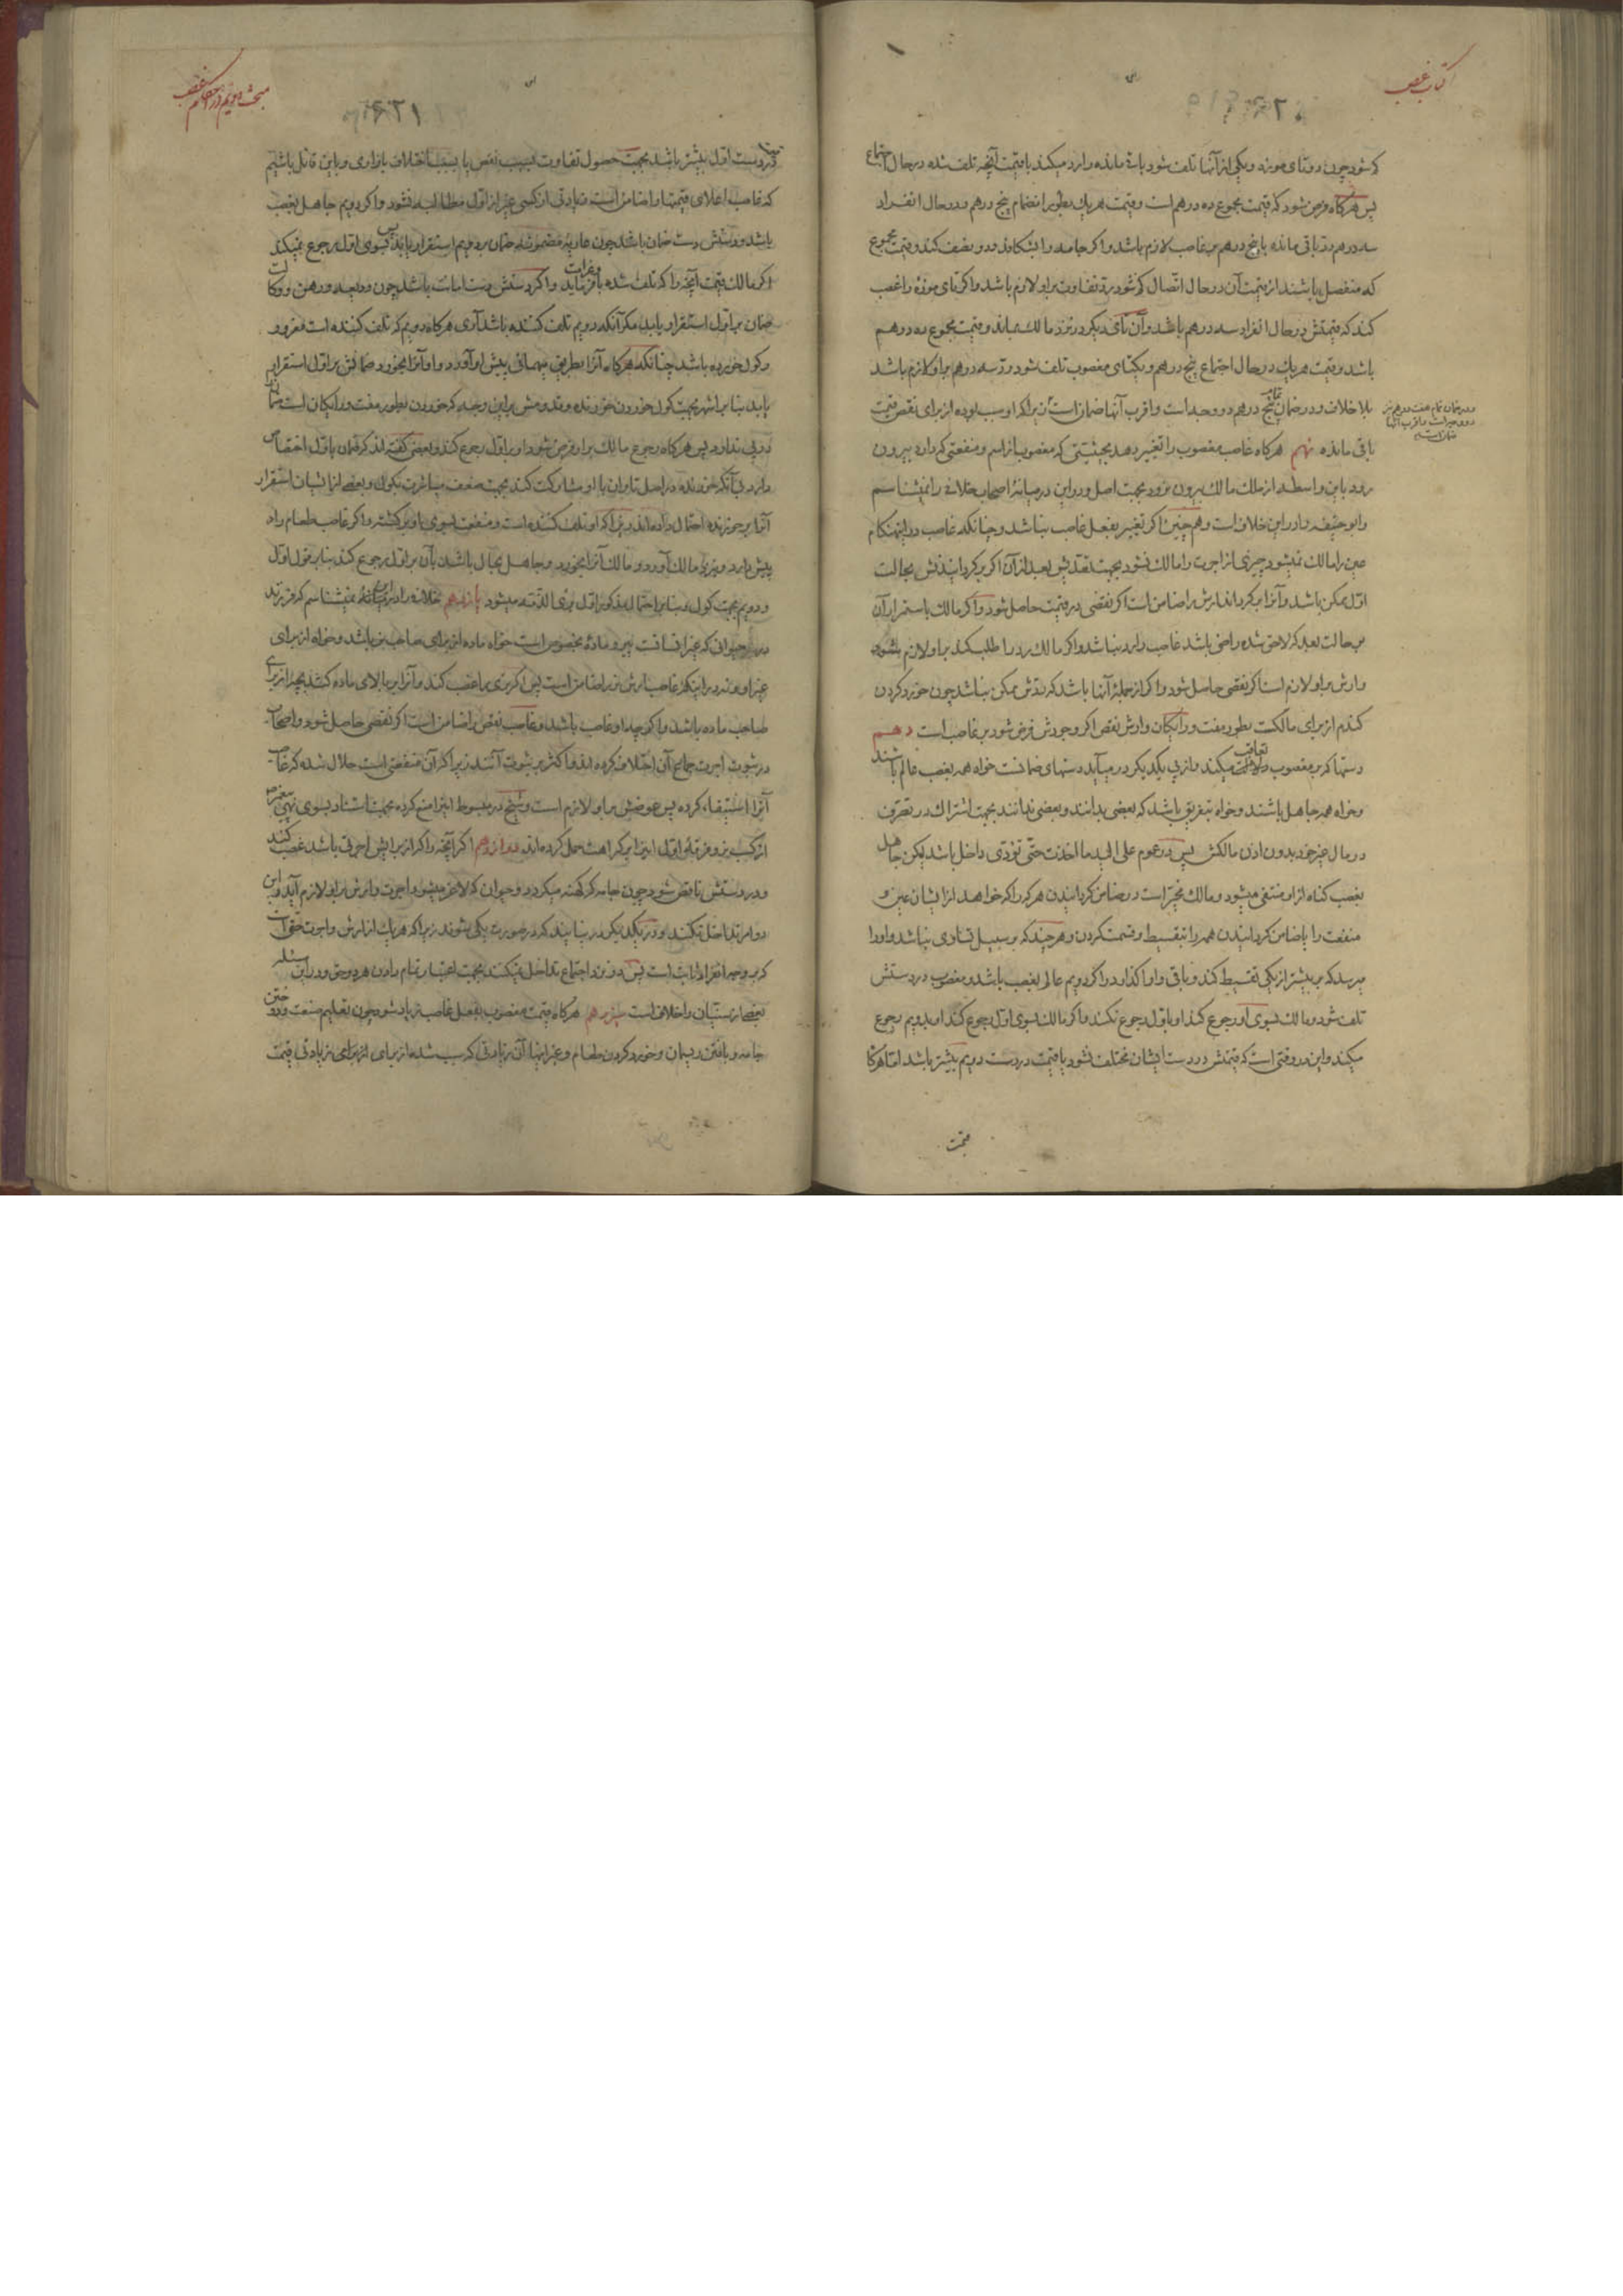 کتاب غصب
کم شود چون دو تای موزه و یکی از آنها تلف شود باقی مانده را رد میکند با قیمت آنچه تلف شده در حال اجتماع
پس هرگاه فرض شود که قیمت مجموع ده درهم است و قیمت هر یک بطور انضمام پنج درهم و در حال انفراد
سه درهم رد باقی مانده با پنج درهم بر غاصب لازم باشد و اگر جامه را بشکافد و دو نصف کند و قیمت مجموع
که منفصل باشند از قیمت آن در حال اتصال کم شود رد تفاوت بر او لازم باشد و اگر تای موزه را غصب
کند که قیمتش در حال انفراد سه درهم باشد و آن تای دیگر در نزد مالک بماند و قیمت مجموع ده درهم
باشد و قیمت هر یک در حال اجتماع پنج درهم و یکتای مغصوب تلف شود رد سه درهم بر او لازم باشد
بلا خلاف و در ضمان تمام پنج درهم دو وجه است و اقرب آنها ضمان است زیرا که او سبب بوده از برای نقص قیمت
باقی مانده نهم هرگاه غاصب مغصوب را تغییر دهد بحیثیتی که مغصوب از اسم و منفعتی که دارد بیرون
رود باین واسطه از ملک مالک بیرون نرود بجهت اصل و در این در میانهٔ اصحاب خلافی را نمیشناسم
و ابو حنیفه را در این خلاف است و هم چنین اگر تغییر بفعل غاصب نباشد و چنانکه غاصب در اینهنگام
عین را مالک نمیشود چیزی از اجرت را مالک نشود بجهت تعدیش بعد از آن اگر برگردانیدنش بحالت
اول ممکن باشد و آنرا برگرداند ارش را ضامن است اگر نقصی در قیمت حاصل شود و اگر مالک باستمرار آن
بر حالت بعد که لاحق شده راضی باشد غاصب را رد نباشد و اگر مالک رد را طلب کند بر او لازم بشود
و ارش بر او لازم است اگر نقصی حاصل شود و اگر از جمله آنها باشد که ردش ممکن نباشد چون خورد کردن
گندم از برای مالکست بطور مفت و رایگان و ارش نقص اگر وجودش فرض شود بر غاصب است دهم
دستها که بر مغصوب تعاقب میکند و از پی یکدیگر در میآید دستهای ضمانت خواه همه بغصب عالم باشند
و خواه همه جاهل باشند و خواه بتفریق باشد که بعضی بدانند و بعضی ندانند بجهت اشتراک در تصرف
در مال غیر خود بدون اذن مالکش پس در عموم علی الید ما اخذت حتی تؤدی داخل باشد لیکن جاهل
بغصب گناه از او منتفی میشود و مالک مخیر است در ضامن گردانیدن هر که را که خواهد از ایشان عین و
منفعت را یا ضامن گردانیدن همه را بتقسیط و قسمت کردن و هر چند که بر سبیل تساوی نباشد و او را
میرسد که بر بیشتر از یکی تقسیط کند و باقی را واگذارد و اگر دویم عالم بغصب باشد و مغصوب در دستش
تلف شود و مالک بسوی او رجوع کند او باول رجوع نکند و اگر مالک بسوی اول رجوع کند او بدویم رجوع
میکند و این در وقتی است که قیمتش در دست ایشان مختلف نشود یا قیمت در دست دویم بیشتر باشد اما هرگاه
قیمت
مبحث دویم در احکام غصب
۶۲۱
در دست اول بیشتر باشد بجهت حصول تفاوت بسبب نقص یا بسبب اختلاف بازاری و باین قائل باشیم
که غاصب اعلای قیمتها را ضامن است زیادتی از کسی غیر از اول مطالبه نشود و اگر دویم جاهل بغصب
باشد و دستش دست ضمان باشد چون عاریهٔ مضمونه ضمان بر دویم استقرار یابد پس بسوی اول رجوع نمیکند
اگر مالک قیمت آنچه را که تلف شده باز و اگر دستش دست امانت باشد چون ودیعه و رهن و وکالت
ضمان بر اول استقرار یابد مگر آنکه دویم تلف کننده باشد آری هرگاه دویم که تلف کننده است مغرور
و گول خورده باشد چنانکه هرگاه آنرا بطریق میهمانی پیش او آورد و او آنرا بخورد ضمانش بر اول استقرار
یابد بنا بر اشهر بجهت گول خوردن خورنده و قدومش بر این وجه که خوردن بطور مفت و رایگان است ضمان
در پی ندارد پس هرگاه رجوع مالک بر او فرض شود او بر اول رجوع کند و بعضی گفته اند که ضمان باول اختصاص
دارد بی آنکه خورنده در اصل تاوان با او مشارکت کند بجهت ضعف مباشرت بگول و بعضی از ایشان استقرار
آنرا بر خورنده احتمال داده اند زیرا که او تلف کننده است و منفعت بسوی او برگشته و اگر غاصب طعام را در
پیش دارد و نزد مالک آورد و مالک آنرا بخورد و جاهل بحال باشد بآن بر اول رجوع کند بنا بر قول اول
و دویم بجهت گول و بنا بر احتمال مذکور اول بریء الذمه میشود یازدهم خلافی را در میانه نمیشناسم که فرزند
در حیوانی که غیر انسانست پیرو مادهٔ مخصوص است خواه ماده از برای صاحب نر باشد و خواه از برای
غیر او و نه در اینکه غاصب ارش نر را ضامن است پس اگر نری را غصب کند و آنرا بر بالای ماده کشد بچه از برای
صاحب ماده باشد و اگر چه او غاصب باشد و غاصب نقص را ضامن است اگر نقصی حاصل شود و اصحاب
در ثبوت اجرت جماع آن اختلاف کرده اند و اکثر بر ثبوت آنند زیرا که آن منفعتی است حلال شده که غاصب
آنرا استیفاء کرده پس عوضش بر او لازم است و شیخ در مبسوط اینرا منع کرده بجهت استناد بسوی نهی پیغمبر ص
از کسب نر و فرقهٔ اول اینرا بر کراهت حمل کرده اند دوازدهم اگر آنچه را که از برایش اجرتی باشد غصب کند
و در دستش ناقص شود چون جامه که کهنه میگردد و حیوان که لاغر میشود اجرت و ارش بر او لازم آید و این
دو امر تداخل نکنند و در یکدیگر در نیایند که در صورت یکی بشوند زیرا که هر یک از ارش و اجرت حقی است
که بر وجه انفراد ثابت است پس در نزد اجتماع تداخل نمیکنند بجهت اعتبار تمام دادن هر دو حق و در این مسئله
بعضی از سنیان را خلاف است سیزدهم هرگاه قیمت مغصوب بفعل غاصب زیاد شود چون تعلیم صنعت و دوختن
جامه و بافتن ریسمان و خورد کردن طعام و غیر اینها آن زیادتی که سبب شده از برای زیادتی قیمت